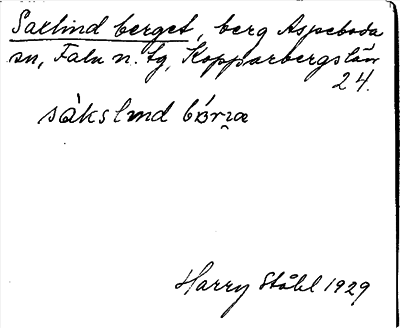 Saxlind berget, berg Aspeboda
sn, Falu n. tg, Kopparbergs län
24.
sàkslınd bǽrıæ
Harry Ståhl 1929